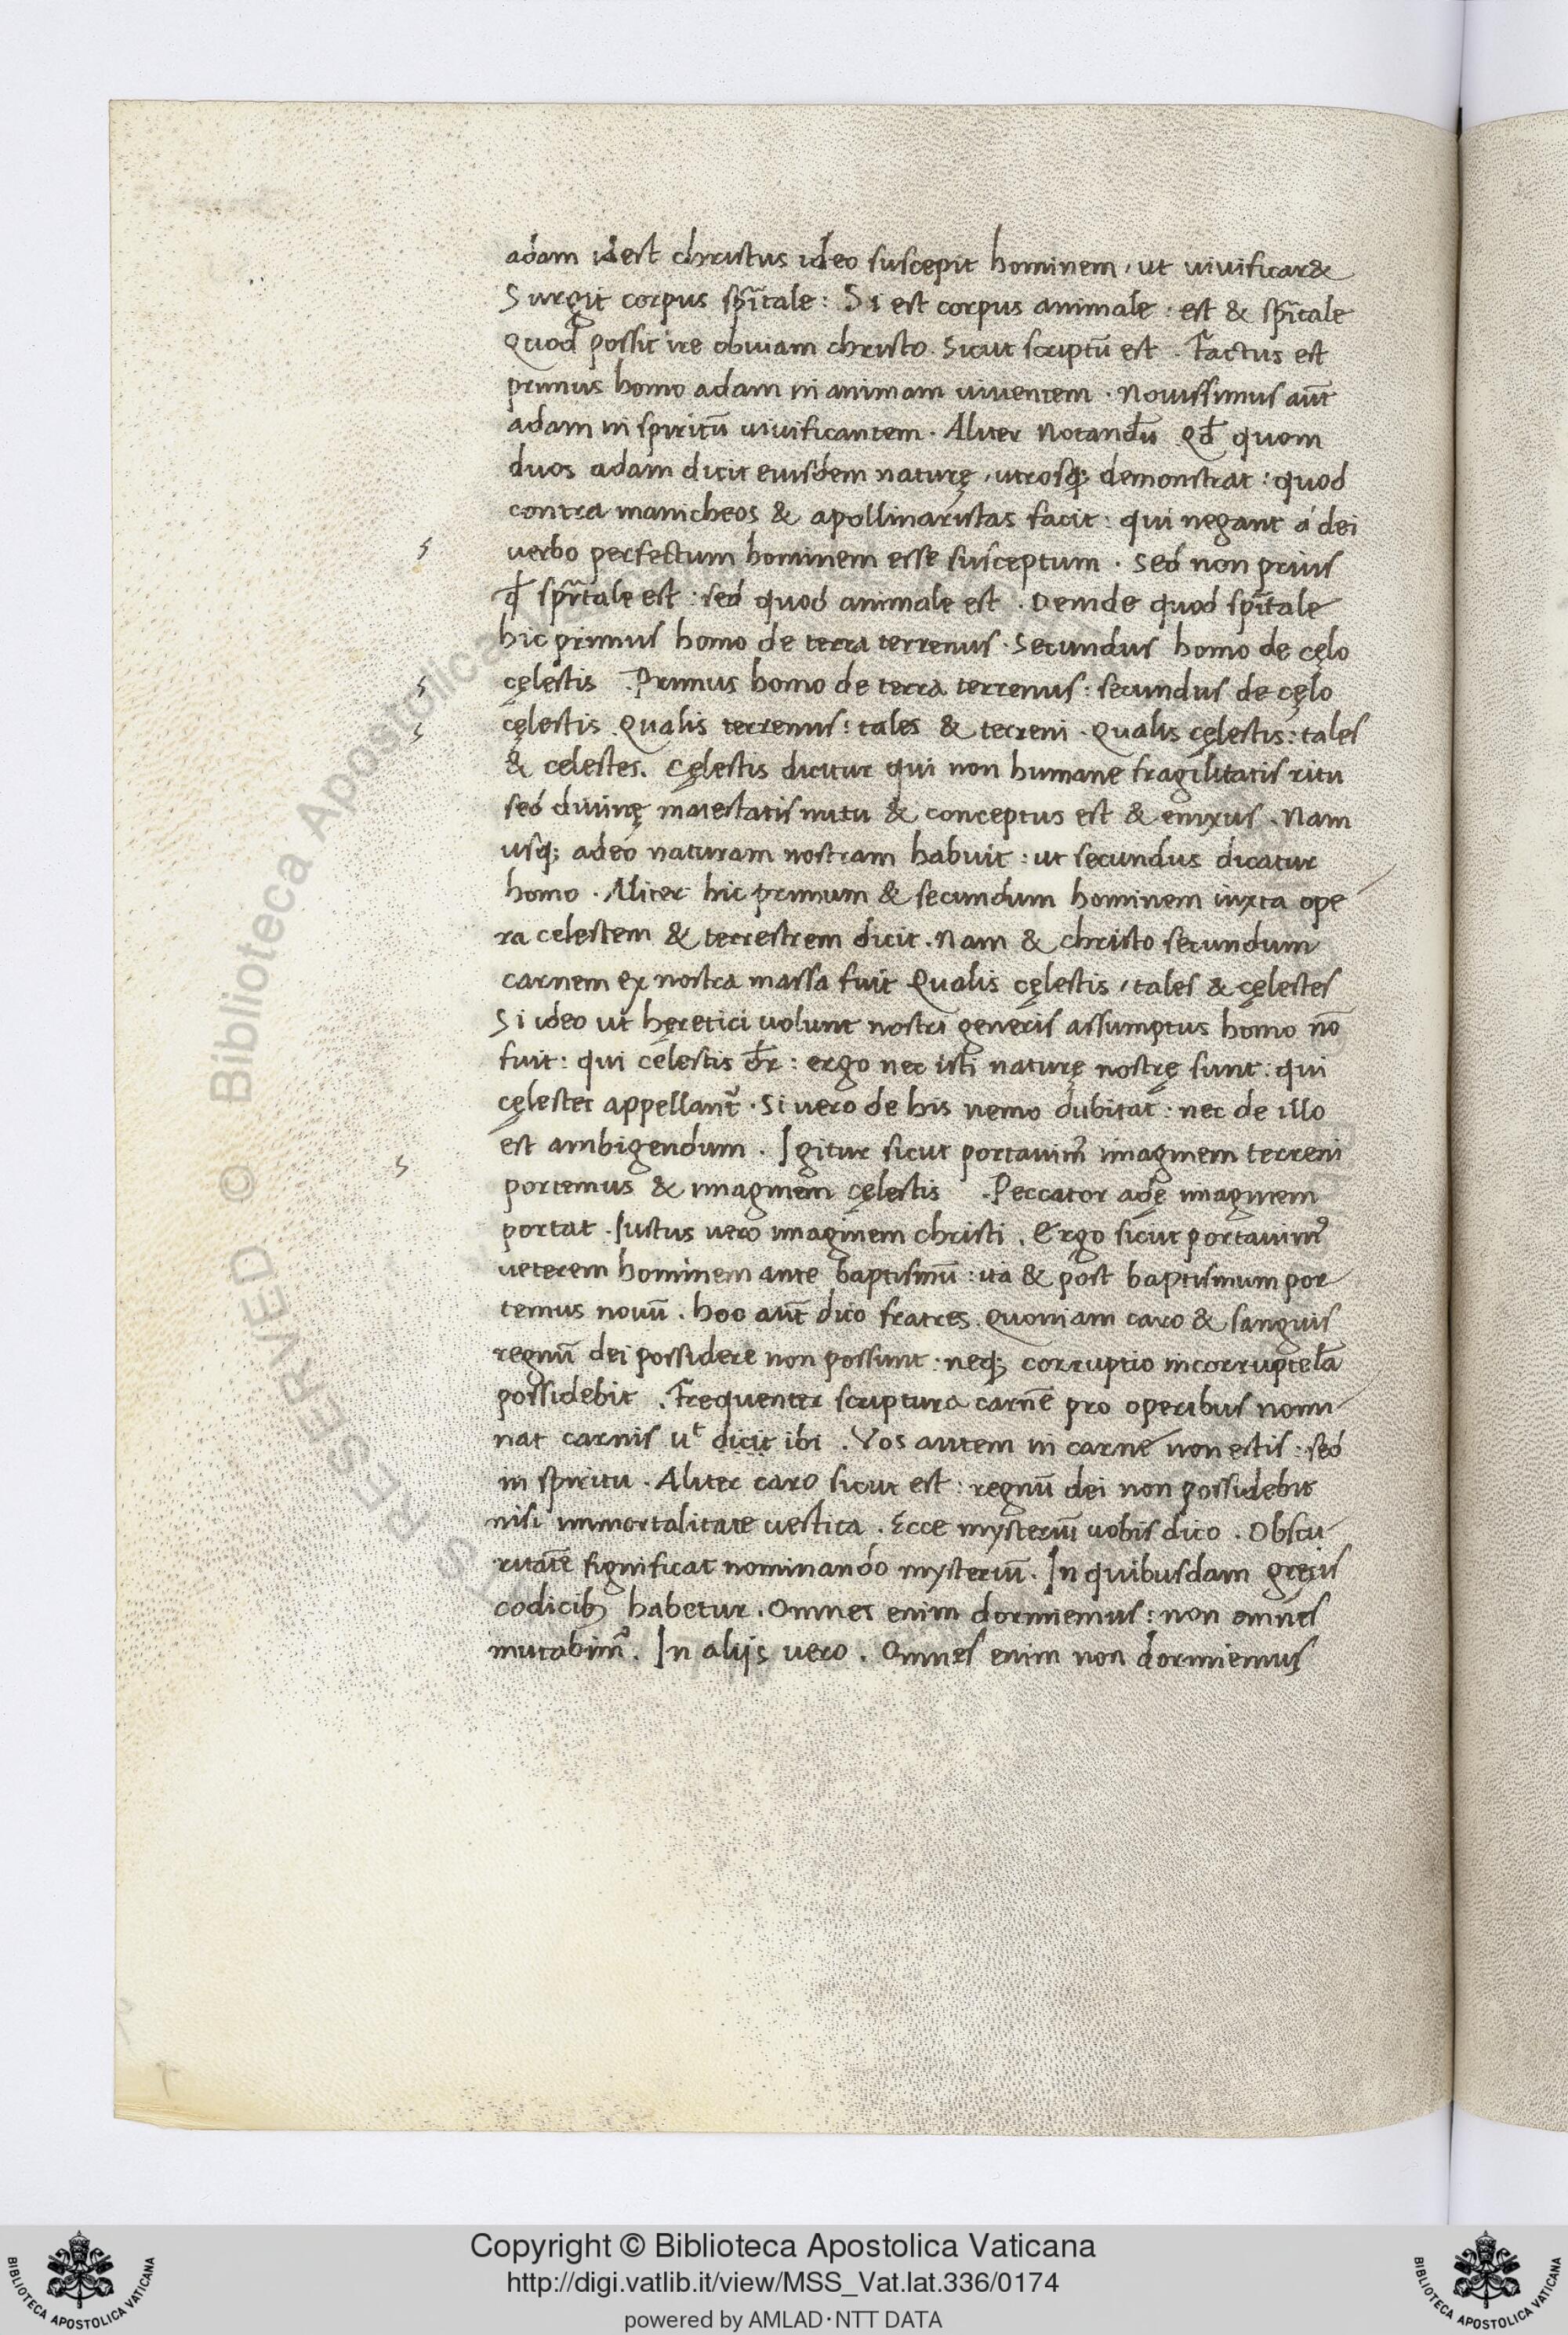 adam idest christus ideo suscepit hominem, ut vivificar&
Surgit corpus sp̄itale: Si est corpus animale: est & sp̄itale
Quod possit ire obuiam christo. Sicut scriptū est. Factus est
primus homo adam in animam uiuentem. Nouissimus aūt
adam in spiritū uiuificantem. Aliter Notandū Qđ quom
duos adam dicit eiusdem naturę, utrosq; demonstrat: quod
contra manicheos & apollinaristas facit: qui negant á dei
uerbo perfectum hominem esse susceptum. Sed non prius
qđ sp̄itale est: sed quod animale est. Deinde quod sp̄itale
hic primus homo de terra terrenus. Secundus homo de cęlo
cęlestis. Primus homo de terra terrenus: secundus de cęlo
cęlestis. Qualis terrenus: tales & terreni. Qualis cęlestis: tales
& celestes. Cęlestis dicitur qui non humane fragilitatis ritu
sed diuinę maiestatis nutu & conceptus est & enixus. Nam
usq; adeo naturam nostram habuit: ut secundus dicatur
homo. Aliter hic primum & secundum hominem iuxta ope
ra celestem & terrestrem dicit. Nam & christo secundum
carnem ex nostra massa fuit Qualis cęlestis, tales & cęlestes
Si ideo ut hęretici uolunt nostri generis assumptus homo nō
fuit: qui celestis đr: ergo nec isti naturę nostrę sunt: qui
cęlestes appellant᷑. Si uero de his nemo dubitat: nec de illo
est ambigendum. Igitur sicut portauim᾿ imaginem terreni
portemus & imaginem cęlestis. Peccator adę imaginem
portat. Iustus uero imaginem christi. Ergo sicut portauim᾿
ueterem hominem ante baptismū: ita & post baptismum por
temus nouū. hoc aūt dico fratres. Quoniam caro & sanguis
regnū dei possidere non possunt: neq; corruptio incorruptelā
possidebit. Frequenter scriptura carnē pro operibus nomi
nat carnis uᵗ dicit ibi. Vos autem in carne non estis: sed
in spiritu. Aliter caro sicut est: regnū dei non possidebit
nisi immortalitate uestita. Ecce mysteriū uobis dico. Obscu
ritatē significat nominando mysteriū. In quibusdam gręcis
codicib; habetur. Omnes enim dormiemus: non omnes
mutabim᾿. In alijs uero. Omnes enim non dormiemus
Copyright © Biblioteca Apostolica Vaticana
http://digi.vatlib.it/view/MSS_Vat.lat.336/0174
powered by AMLAD·NTT DATA
BIBLIOTECA APOSTOLICA VATICANA
BIBLIOTECA APOSTOLICA VATICANA